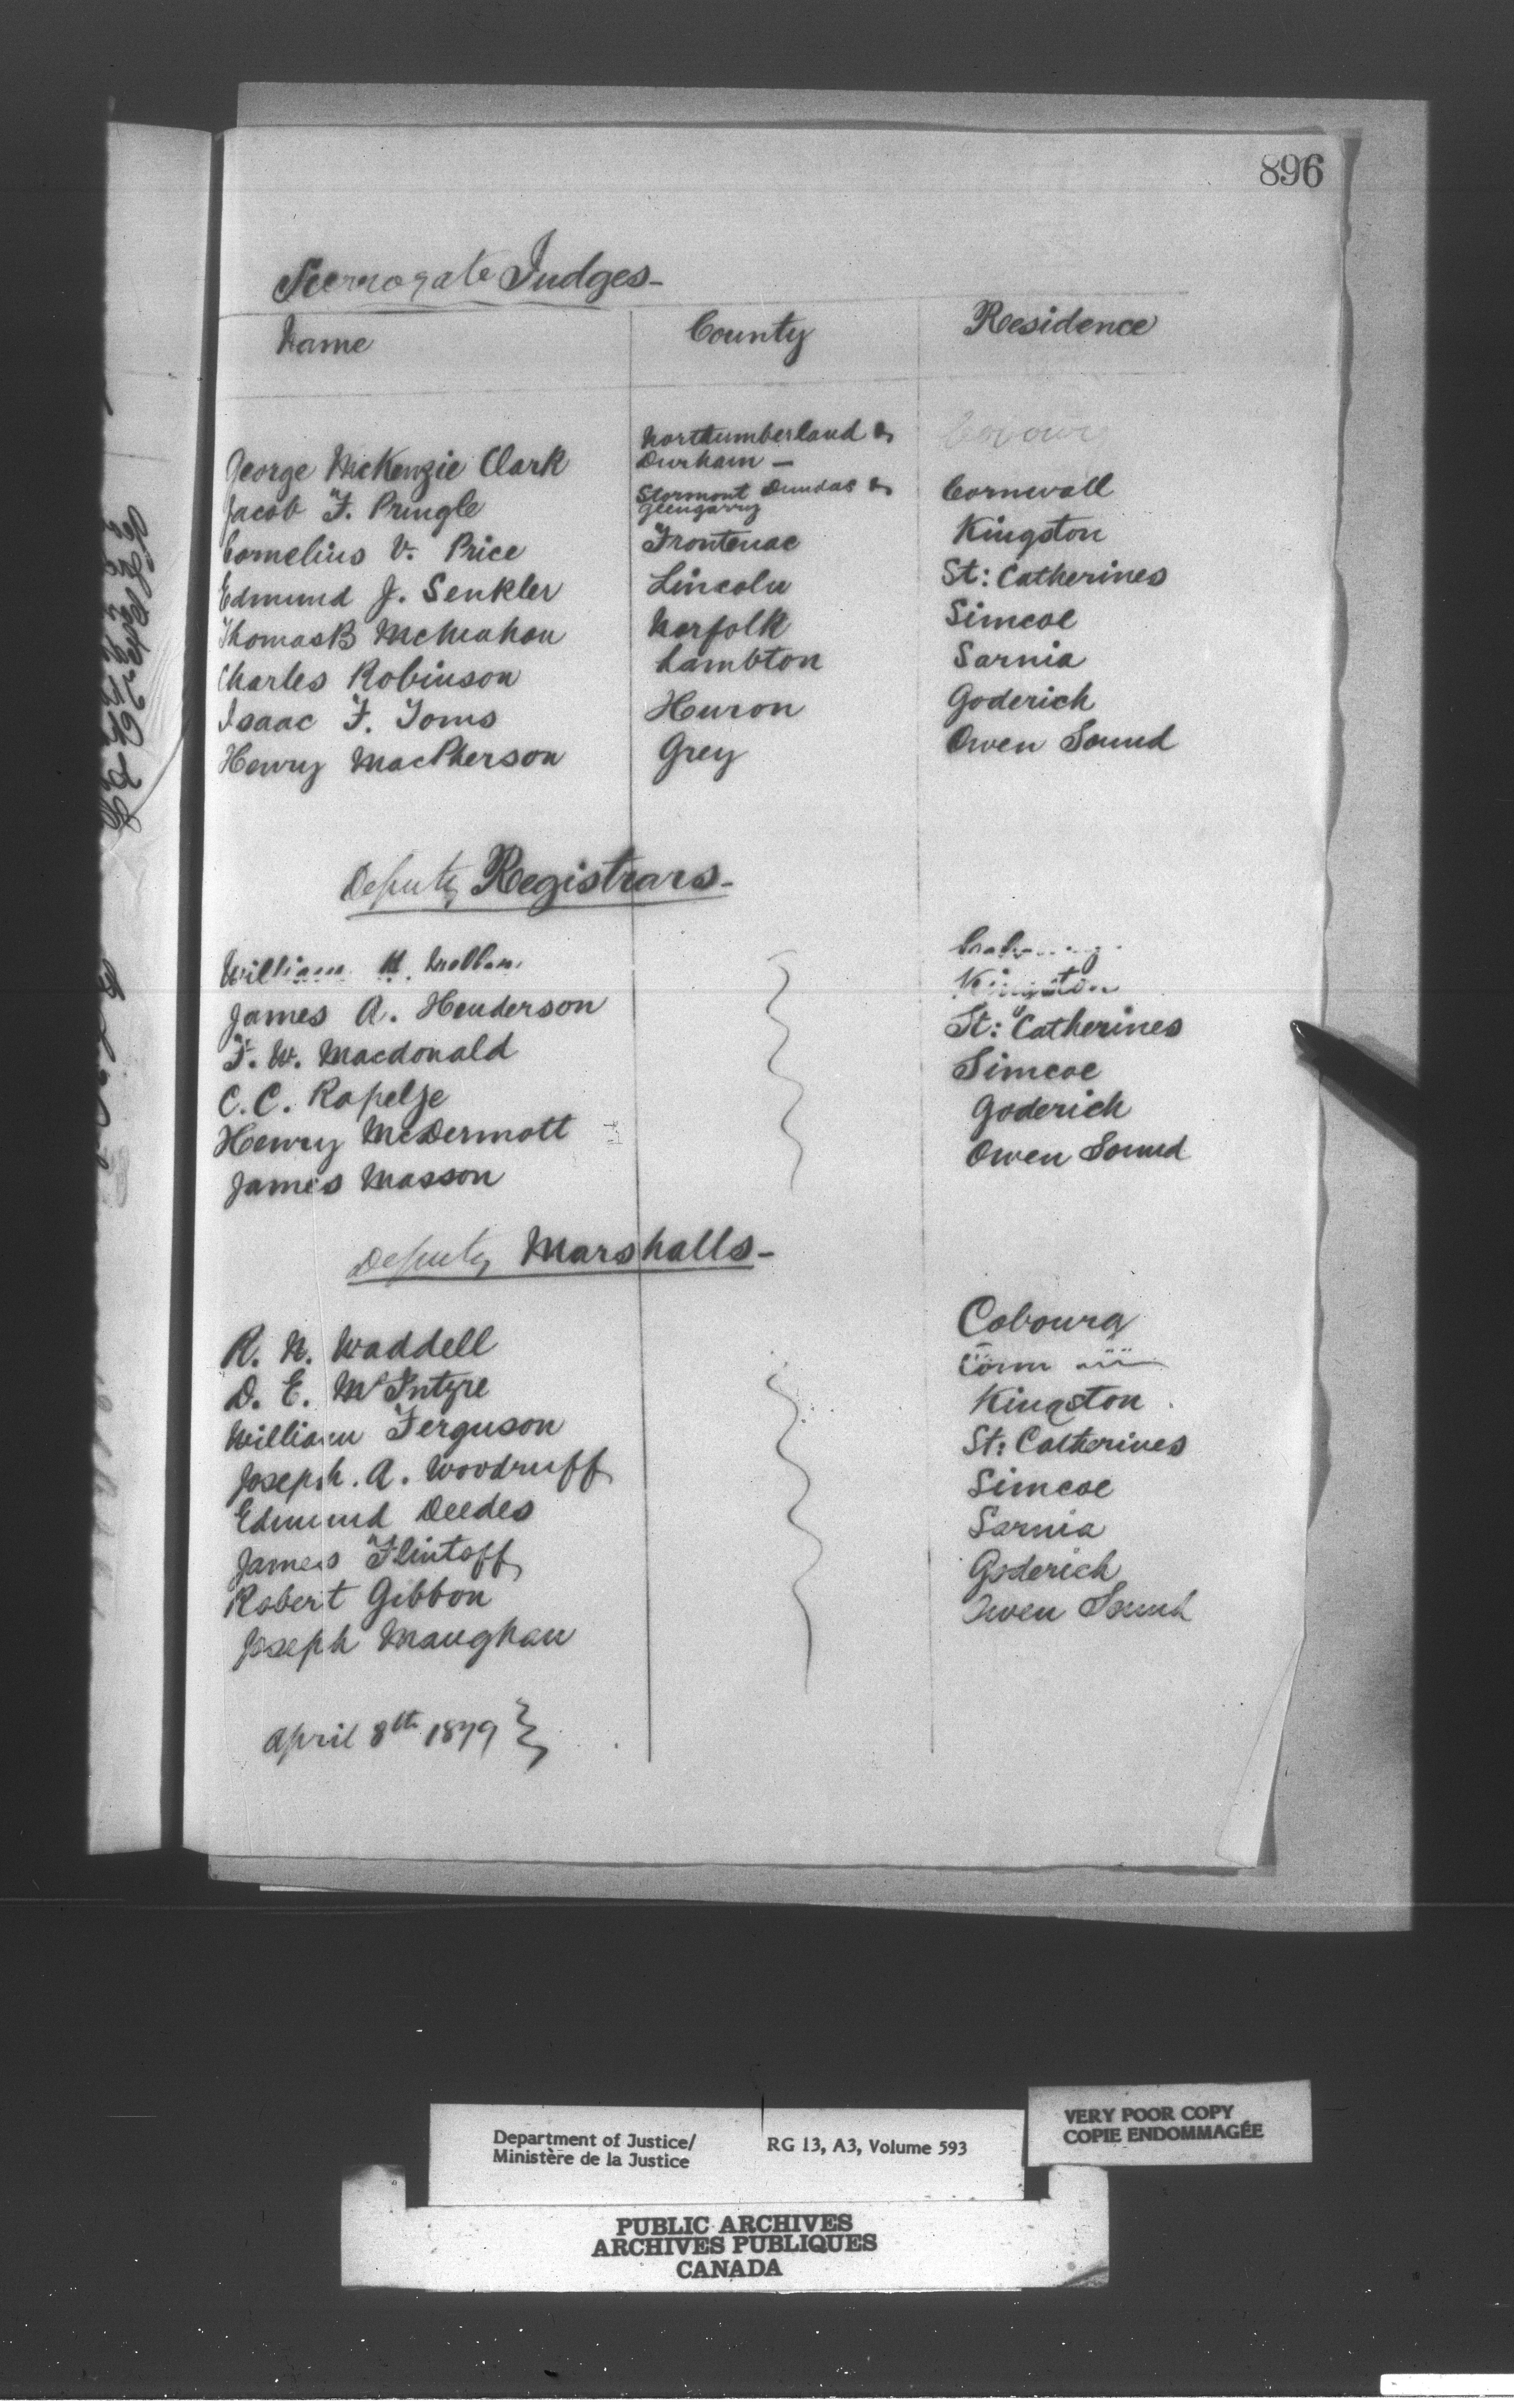 896
Surrogate Judges-
Name County Residence
George McKenzie Clark Northumberland & Durham - Cobourg
Jacob F. Pringle Stormont Dundas & Glengarry Cornwall
Cornelius V. Price Frontenac Kingston
Edmund J. Senkler Lincoln St: Catherines
Thomas B McMahon Norfolk Simcoe
Charles Robinson Lambton Sarnia
Isaac F. Toms Huron Goderich
Henry MacPherson Grey Owen Sound
Deputy Registrars-
William H.
James A. Henderson Kingston
F. W. Macdonald St: Catherines
C. C. Rapelje Simcoe
Henry McDermott Goderich
James Masson Owen Sound
Deputy Marshalls-
R. N. Waddell Cobourg
D. E. McIntyre
William Ferguson Kingston
Joseph. A. Woodruff St: Catherines
Edmund Deedes Simcoe
James Flintoff Sarnia
Robert Gibbon Goderich
Joseph Maughan Owen Sound
April 8th 1879
VERY POOR COPY
COPIE ENDOMMAGÉE
Department of Justice/ RG 13, A3, Volume 593
Ministère de la Justice
PUBLIC ARCHIVES
ARCHIVES PUBLIQUES
CANADA